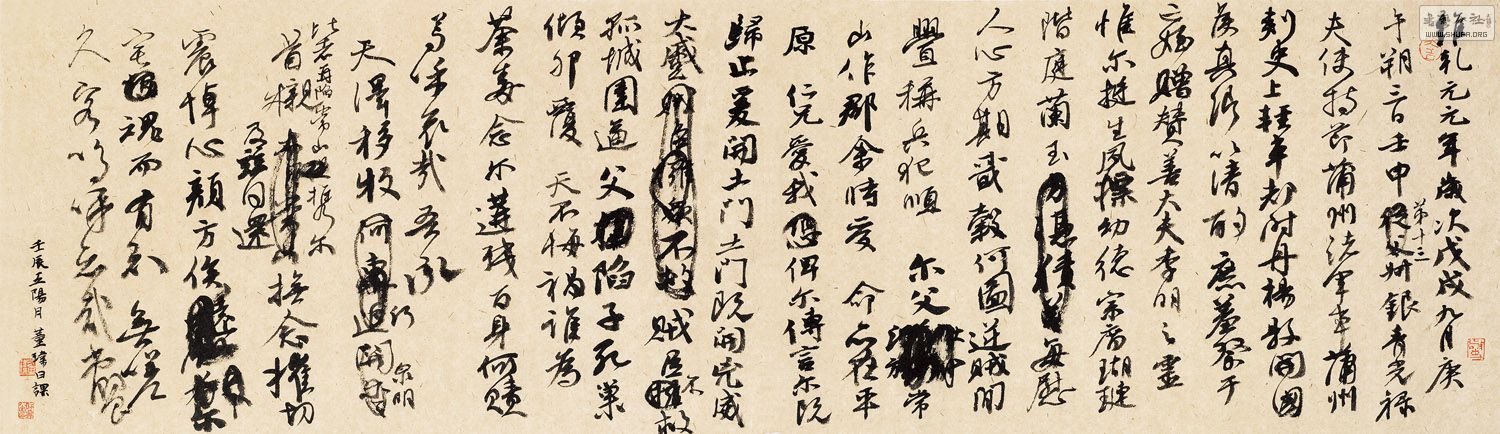 乾元元年歲次戊戌九月庚
午朔三日壬申從父銀青光祿
第十三
夫使持節蒲州諸軍事蒲州
刺史上輕車都尉丹楊縣開國
侯真卿以清酌庶羞祭于
亡姪贈贊善大夫季明之靈
惟爾挺生夙標幼德宗廟瑚璉
階庭蘭玉每慰
人心方期戩穀何圖逆賊閒
釁稱兵犯順爾父常
山作郡余時受命亦在平
原仁兄愛我恐俾爾傳言爾既
歸止爰開土門土門既開兇威
大蹙賊臣不救
孤城圍逼父陷子死巢
傾卵覆天不悔禍誰為
荼毒念爾遘殘百身何贖
嗚呼哀哉吾承
天澤移牧河關
泉明
比者再陷常山攜爾
首櫬及茲同還撫念摧切
震悼心顏方俟遠
宅魂而有知無嗟
久客嗚呼哀哉尚饗
壬辰五陽月董日課
WWW.SHUFA.ORG